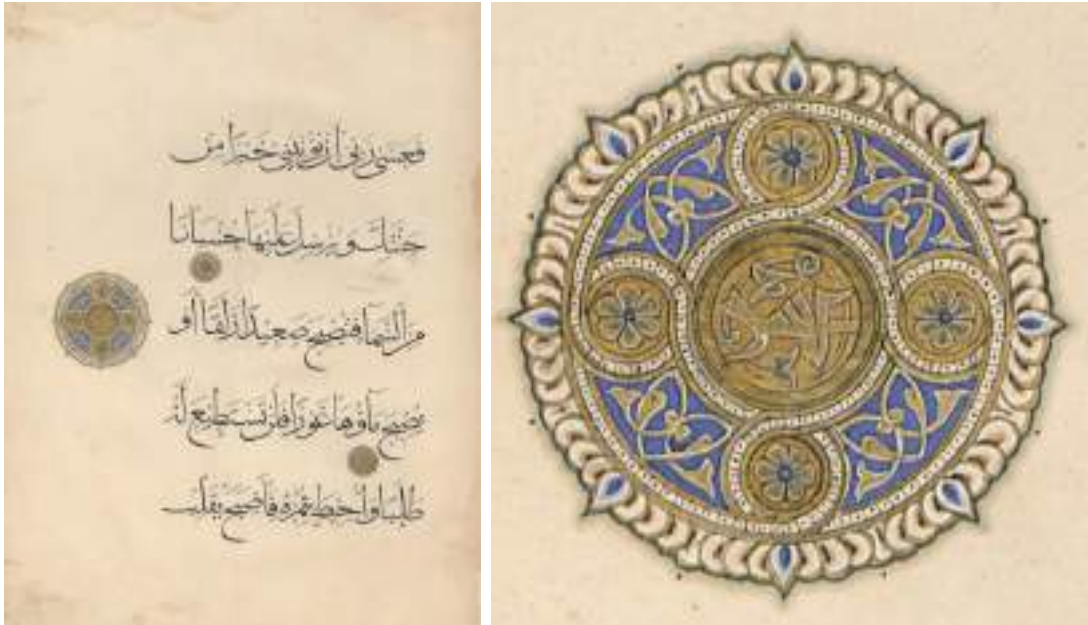 فعسى ربى ان يؤتينى خيرا من
جنتك ويرسل عليها حسبانا
من السما فتصبح صعيدا زلقا او
يصبح ماؤها غورا فلن تستطيع له
طلبا واحيط بثمره فاصبح يقلب